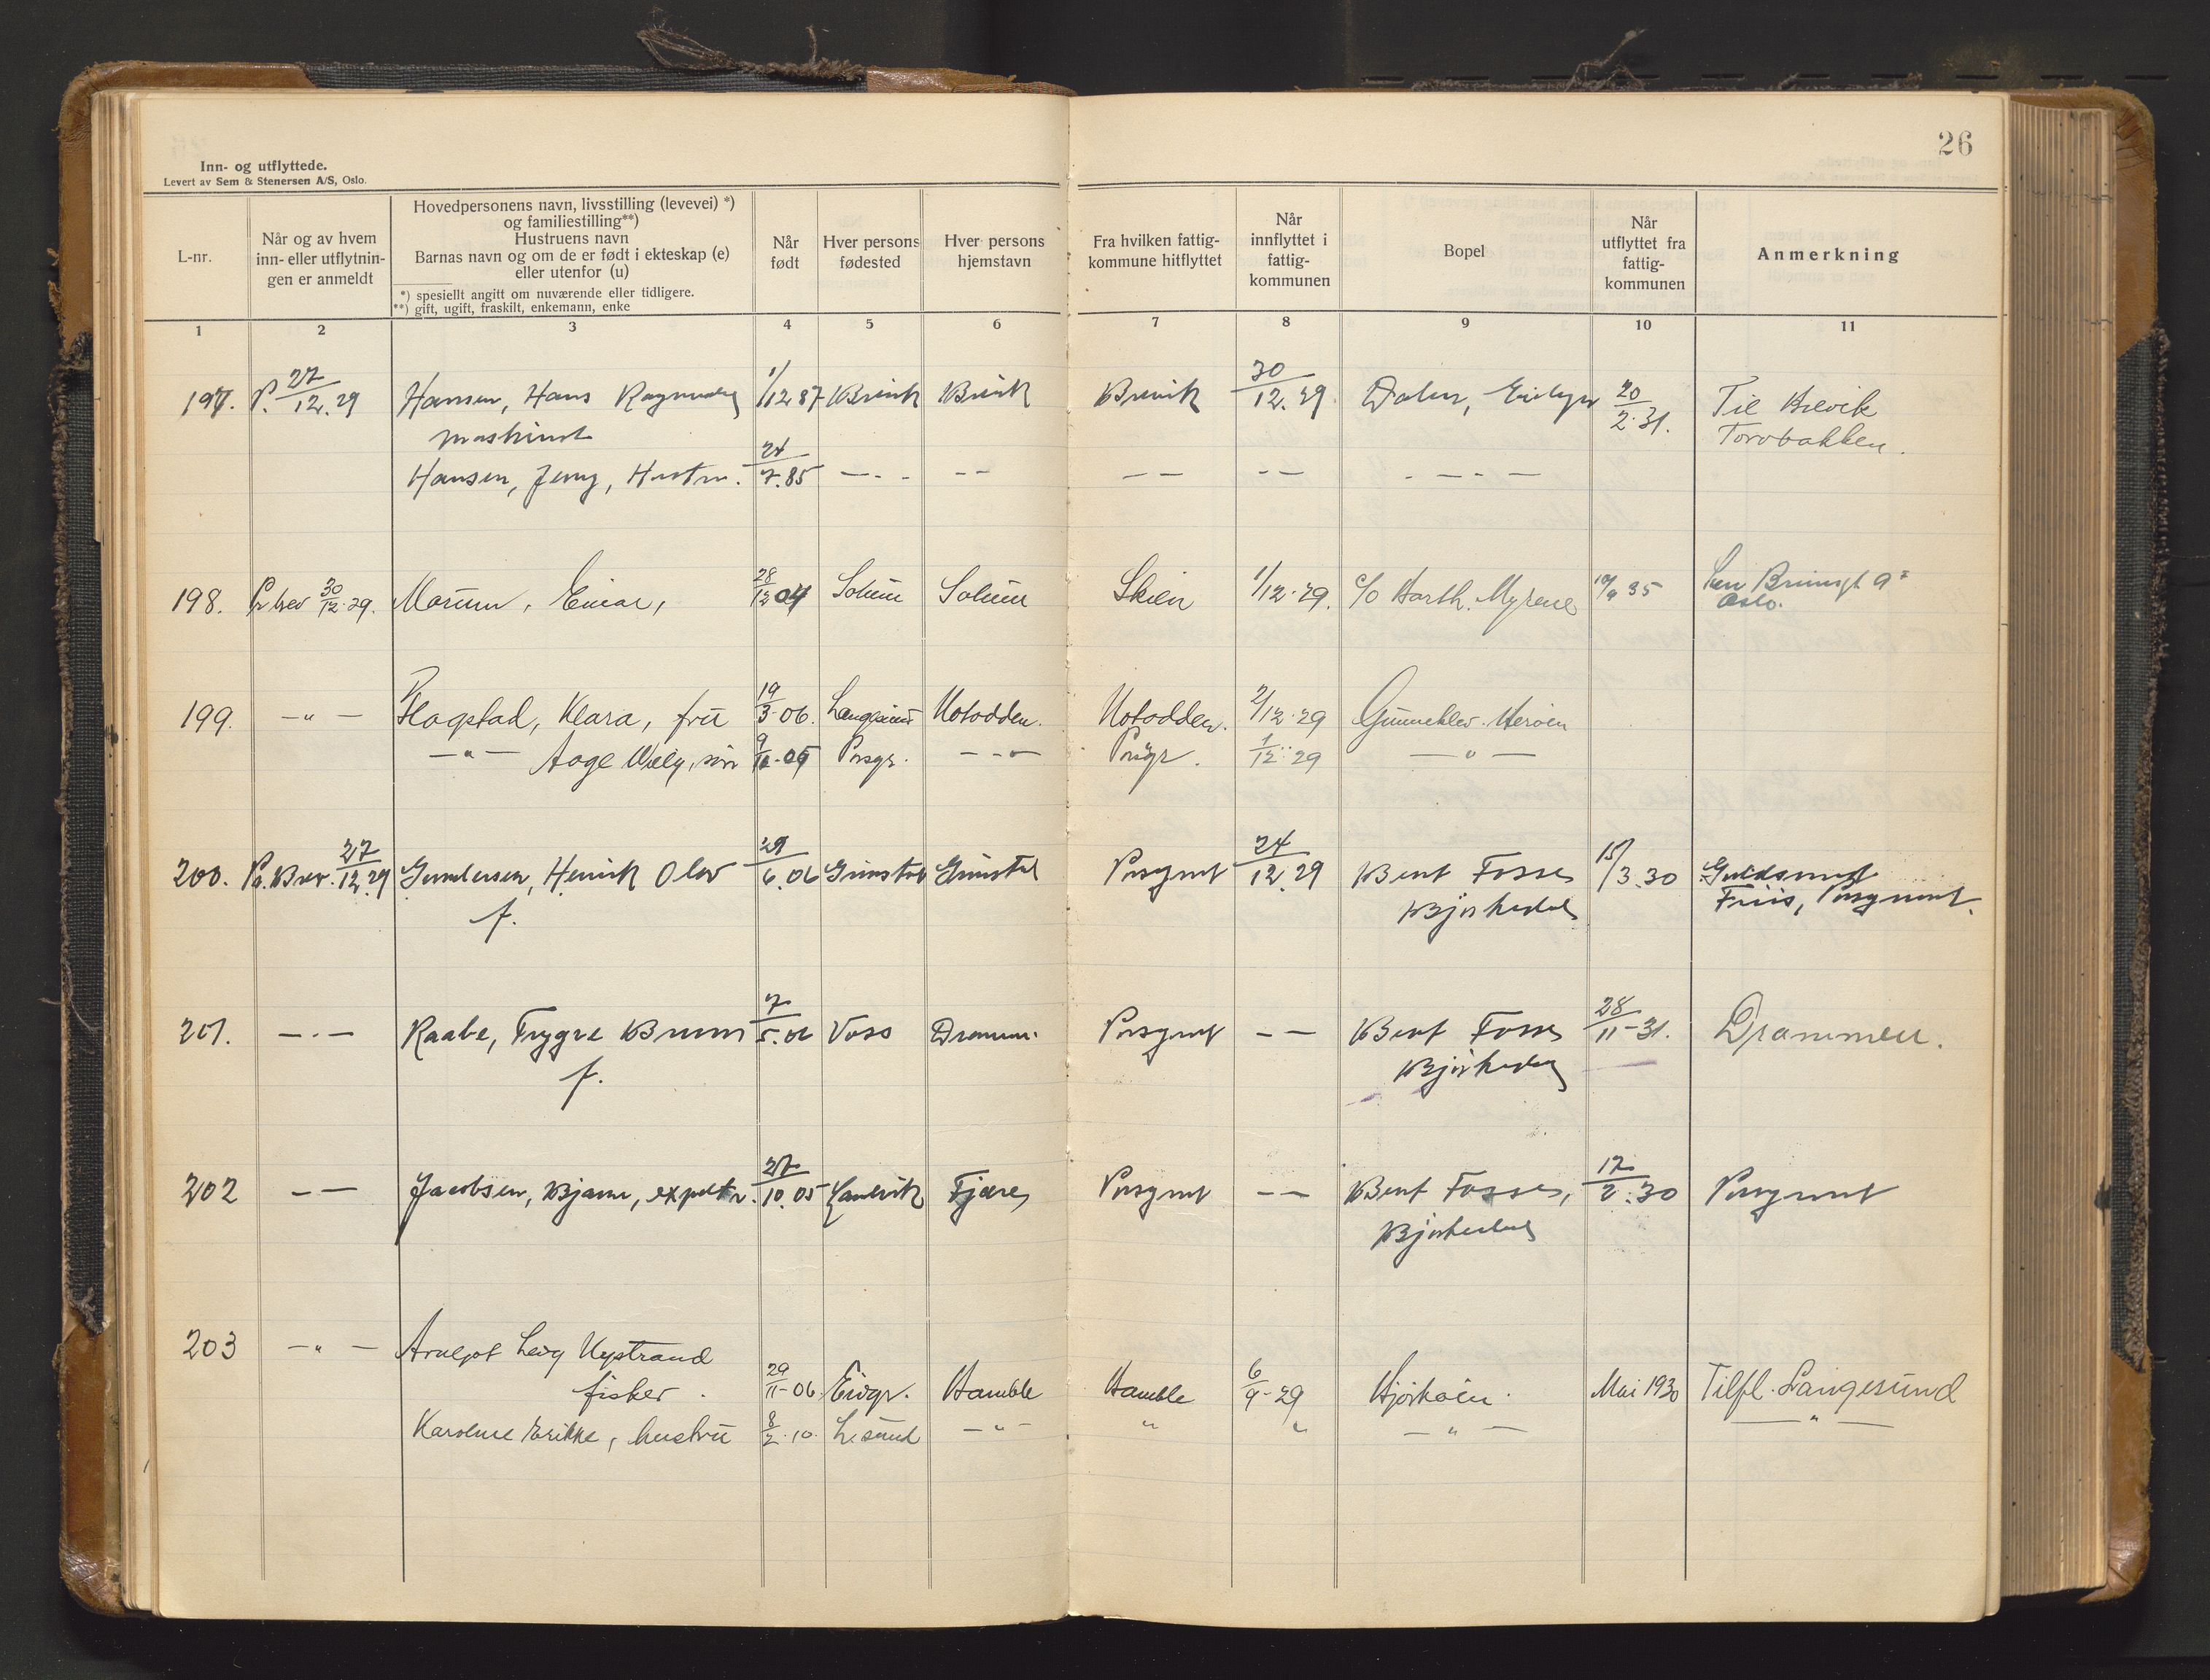 26
Inn- og utflyttede.
Levert av Sem & Stenersen A/S, Oslo.
L-nr.
Når og av hvem
inn- eller utflytnin-
gen er anmeldt
Hovedpersonens navn, livsstilling (levevei) *)
og familiestilling**)
Hustruens navn
Barnas navn og om de er født i ekteskap (e)
eller utenfor (u)
*) spesiellt angitt om nuværende eller tidligere.
**) gift, ugift, fraskilt, enkemann, enke
Når
født
Hver persons
fødested
Hver persons
hjemstavn
Fra hvilken fattig-
kommune hitflyttet
Når
innflyttet i
fattig-
kommunen
Bopel
Når
utflyttet fra
fattig-
kommunen
Anmerkning
1 2 3 4 5 6 7 8 9 10 11
197. P. 27/12.29 Hansen, Hans 1/12 87 Brevik Brevik Brevik 30/12.29 Dalen, Eidgr 20/2.31. Til Brevik
maskinist Torvbakken.
Hansen, Jenny, Hustru. 24/7.85 — - - - — — — - - — - — - —
198. Pr brev 30/12.29. Einar, 28/12 04 Solum Solum Skien 1/12.29. c/o Barth. Myrene 35
Oslo.
199. — " — Flogstad, Klara, frü 19/3-06. Langesund Notodden. Notodden. 2/12.29 Gunneklev. Herøen
— " — Aage 05 Porsgr. — - — Porsgr. 1/12.29 — " —
200. Pr. Brev. 27/12.29 Gundersen, Henrik Olav 29/6.06 Grimstad Grimstad Porsgrunn 24/12.29 Bent Fosse 15/3.30 Guldsmed
f. Bjørkedal Friis, Porsgrunn.
201. — . — Raabe, Trygve Bruun 7/5.06 Voss Drammen Porsgrunn — — Bent Fosse 28/11-31. Drammen.
f. Bjørkedal
202 — — Jacobsen, Bjarne, expeditør. 27/10.05 Fjære Porsgrunn — — Bent Fosse, 17/2.30 Porsgrunn
Bjørkedal
203 — " — Arnljot Levy Nystrand
fisker. 29/11-06 Eidgr. Bamble Bamble 6/9-29 Bjørkøin. Mai 1930 Tilfl. Langesund
Karoline Erikke, hustrü 8/2.10. L.sund — " — " " — " — — " —